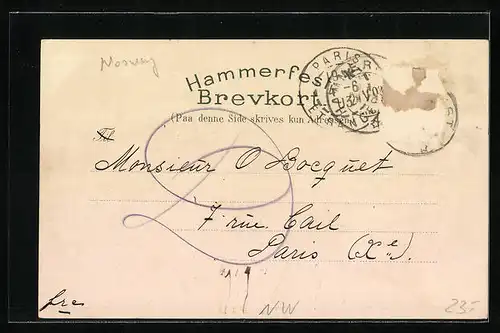 Norway
Hammerfe
Brevkort
PARIS
(Paa denne Side skrives kun Adressen)
Til
Monsieur O Bocquet
7 rue Cail
Paris (Xe).
fre
NW
23.-